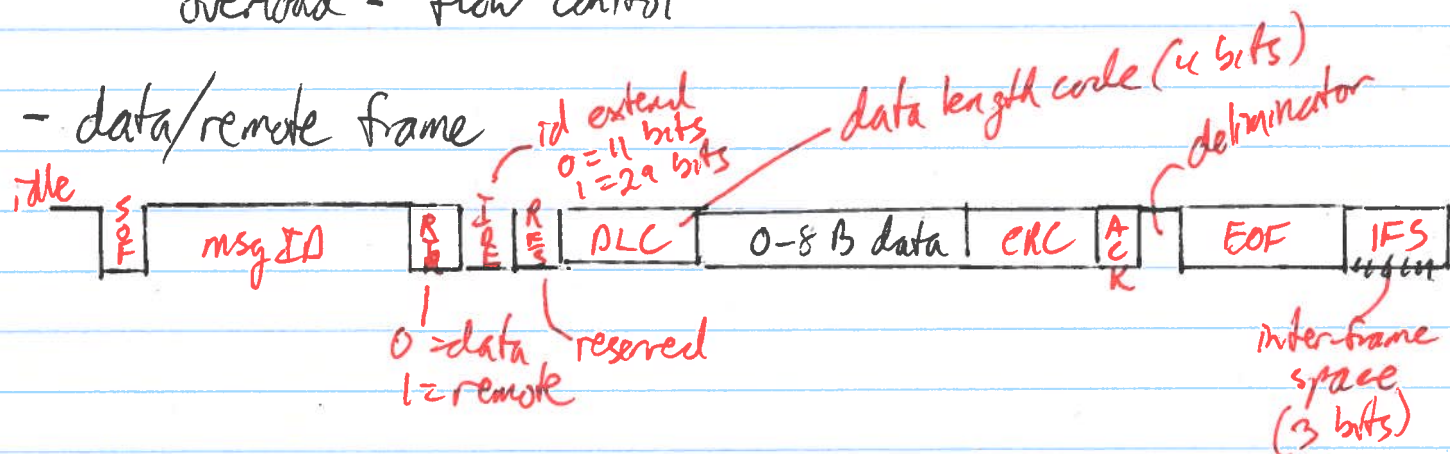 overload - flow control
- data/remote frame
id extend
0 = 11 bits
1 = 29 bits
data length code (4 bits)
deliminator
idle
SOF
msg ID
IDE
RES
DLC
0-8 B data
CRC
ACK
EOF
IFS
0 = data
1 = remote
reserved
inter-frame
space
(3 bits)